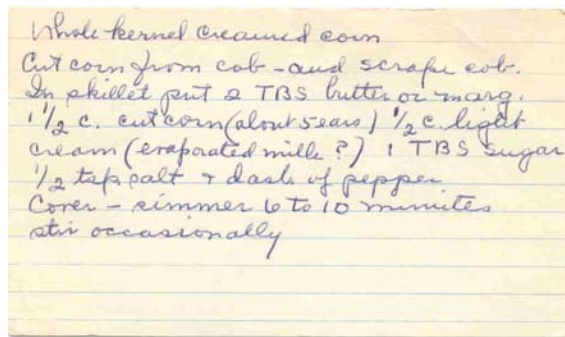 Whole-kernel creamed corn
Cut corn from cob - and scrape cob.
In skillet put 2 TBS butter or marg.
1 1/2 c. cut corn (about 5 ears) 1/2 c. light
cream (evaporated milk?) 1 TBS sugar
1/2 tsp salt + dash of pepper
Cover - simmer 6 to 10 minutes
stir occasionally